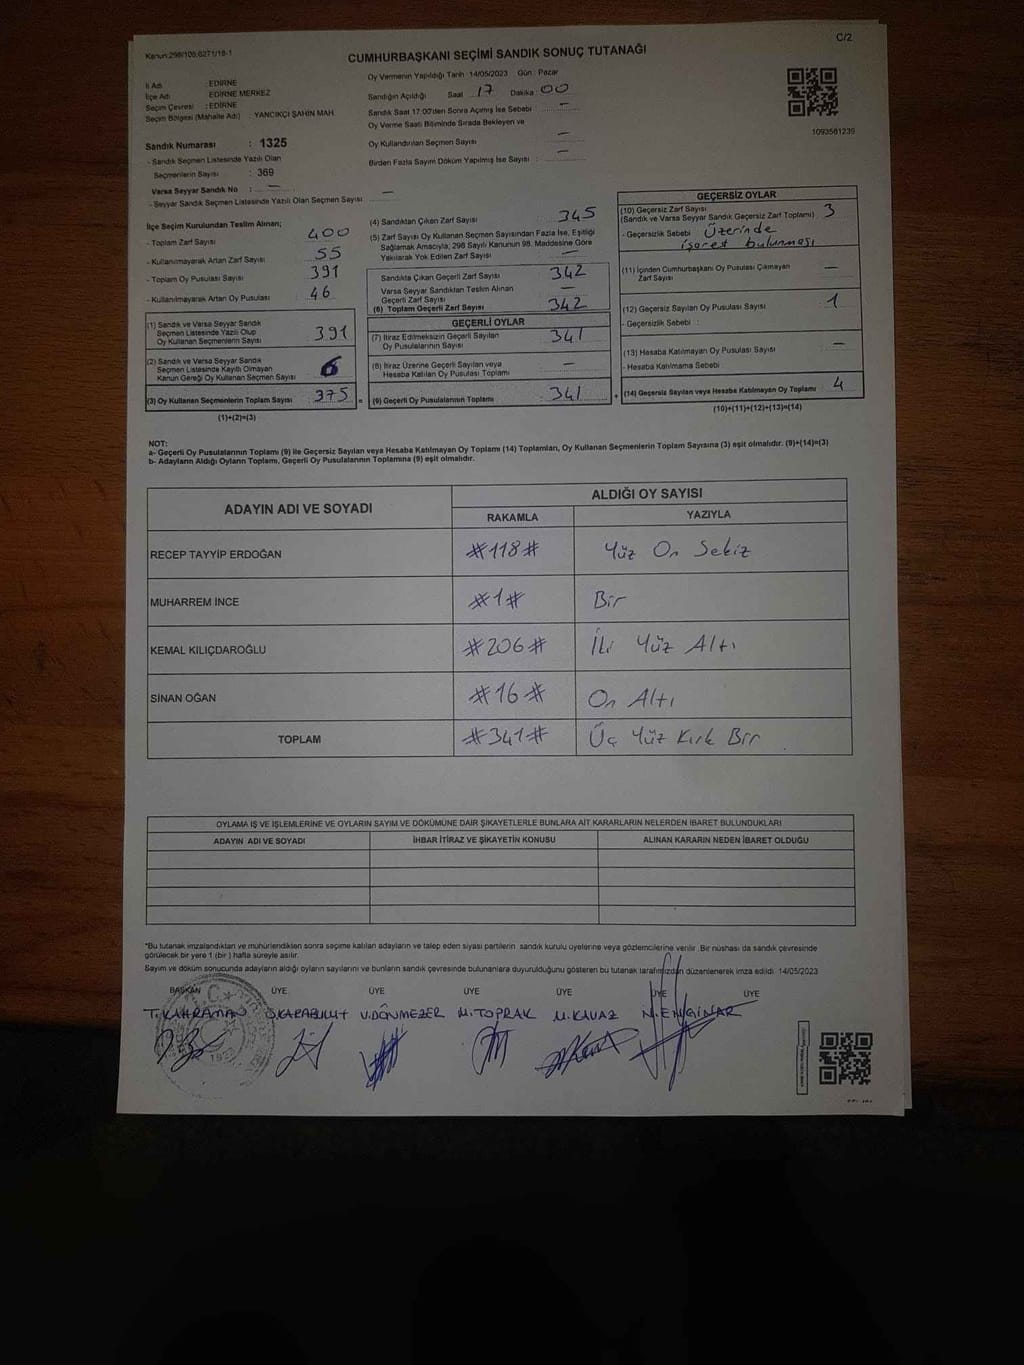 Kanun:298/105;6271/18-1
C/2
CUMHURBAŞKANI SEÇİMİ SANDIK SONUÇ TUTANAĞI
İl Adı : EDİRNE
İlçe Adı : EDİRNE MERKEZ
Seçim Çevresi : EDİRNE
Seçim Bölgesi (Mahalle Adı) : YANCIKÇI ŞAHİN MAH.
Oy Vermenin Yapıldığı Tarih 14/05/2023 Gün : Pazar
Sandığın Açıldığı Saat 17 Dakika 00
Sandık Saat 17:00'den Sonra Açımış İse Sebebi —
Oy Verme Saati Bitiminde Sırada Bekleyen ve
Oy Kullandırılan Seçmen Sayısı —
Birden Fazla Sayım Döküm Yapılmış İse Sayısı : —
1093581239
Sandık Numarası : 1325
- Sandık Seçmen Listesinde Yazılı Olan
Seçmenlerin Sayısı : 369
Varsa Seyyar Sandık No : —
- Seyyar Sandık Seçmen Listesinde Yazılı Olan Seçmen Sayısı —
İlçe Seçim Kurulundan Teslim Alınan;
- Toplam Zarf Sayısı : 400
- Kullanılmayarak Artan Zarf Sayısı : 55
- Toplam Oy Pusulası Sayısı : 391
- Kullanılmayarak Artan Oy Pusulası : 46
(1) Sandık ve Varsa Seyyar Sandık
Seçmen Listesinde Yazılı Olup
Oy Kullanan Seçmenlerin Sayısı 391
(2) Sandık ve Varsa Seyyar Sandık
Seçmen Listesinde Kayıtlı Olmayan
Kanun Gereği Oy Kullanan Seçmen Sayısı 6
(3) Oy Kullanan Seçmenlerin Toplam Sayısı 375 =
(1)+(2)=(3)
(4) Sandıktan Çıkan Zarf Sayısı : 345
(5) Zarf Sayısı Oy Kullanan Seçmen Sayısından Fazla İse, Eşitliği
Sağlamak Amacıyla, 298 Sayılı Kanunun 98. Maddesine Göre
Yakılarak Yok Edilen Zarf Sayısı : —
Sandıkta Çıkan Geçerli Zarf Sayısı : 342
Varsa Seyyar Sandıktan Teslim Alınan
Geçerli Zarf Sayısı —
(6) Toplam Geçerli Zarf Sayısı : 342
GEÇERLİ OYLAR
(7) İtiraz Edilmeksizin Geçerli Sayılan
Oy Pusulalarının Sayısı : 341
(8) İtiraz Üzerine Geçerli Sayılan veya
Hesaba Katılan Oy Pusulası Toplamı —
(9) Geçerli Oy Pusulalarının Toplamı : 341 +
GEÇERSİZ OYLAR
(10) Geçersiz Zarf Sayısı
(Sandık ve Varsa Seyyar Sandık Geçersiz Zarf Toplamı) 3
- Geçersizlik Sebebi Üzerinde
işaret bulunması
(11) İçinden Cumhurbaşkanı Oy Pusulası Çıkmayan
Zarf Sayısı —
(12) Geçersiz Sayılan Oy Pusulası Sayısı 1
- Geçersizlik Sebebi :
(13) Hesaba Katılmayan Oy Pusulası Sayısı —
- Hesaba Katılmama Sebebi
(14) Geçersiz Sayılan veya Hesaba Katılmayan Oy Toplamı 4
(10)+(11)+(12)+(13)=(14)
NOT:
a- Geçerli Oy Pusulalarının Toplamı (9) ile Geçersiz Sayılan veya Hesaba Katılmayan Oy Toplamı (14) Toplamları, Oy Kullanan Seçmenlerin Toplam Sayısına (3) eşit olmalıdır. (9)+(14)=(3)
b- Adayların Aldığı Oyların Toplamı, Geçerli Oy Pusulalarının Toplamına (9) eşit olmalıdır.
ADAYIN ADI VE SOYADI
ALDIĞI OY SAYISI
RAKAMLA YAZIYLA
RECEP TAYYİP ERDOĞAN #118# Yüz On Sekiz
MUHARREM İNCE #1# Bir
KEMAL KILIÇDAROĞLU #206# İki Yüz Altı
SİNAN OĞAN #16# On Altı
TOPLAM #341# Üç Yüz Kırk Bir
OYLAMA İŞ VE İŞLEMLERİNE VE OYLARIN SAYIM VE DÖKÜMÜNE DAİR ŞİKAYETLERLE BUNLARA AİT KARARLARIN NELERDEN İBARET BULUNDUKLARI
ADAYIN ADI VE SOYADI İHBAR İTİRAZ VE ŞİKAYETİN KONUSU ALINAN KARARIN NEDEN İBARET OLDUĞU
*Bu tutanak imzalandıktan ve mühürlendikten sonra seçime katılan adayların ve talep eden siyasi partilerin sandık kurulu üyelerine veya gözlemcilerine verilir. Bir nüshası da sandık çevresinde
görülecek bir yere 1 (bir) hafta süreyle asılır.
Sayım ve döküm sonucunda adayların aldığı oyların sayılarını ve bunların sandık çevresinde bulunanlara duyurulduğunu gösteren bu tutanak tarafımızdan düzenlenerek imza edildi. 14/05/2023
BAŞKAN ÜYE ÜYE ÜYE ÜYE ÜYE ÜYE
T.KAHRAMAN S.KARABULUT V.DÖNMEZER M.TOPRAK M.KAVAZ N.ENGİNAR